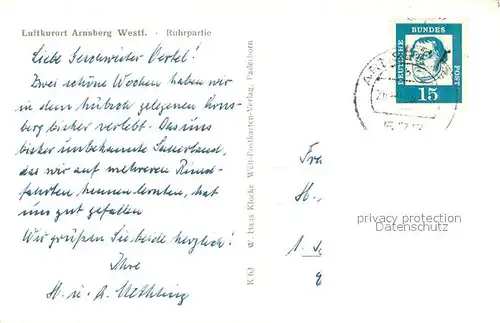 Luftkurort Arnsberg Westf. · Ruhrpartie
Liebe Geschwister Oertel!
Zwei schöne Wochen haben wir
in dem hübsch gelegenen Arns-
berg bisher verlebt. Das uns
bisher unbekannte Sauerland,
das wir auf mehreren Rund-
fahrten kennen lernten, hat
uns gut gefallen
Wir grüßen Sie beide herzlich!
Ihre
H. u. A.
K 63 W. Hans Klocke Welt-Postkarten-Verlag, Paderborn
DEUTSCHE
BUNDES
POST
15
H.
privacy protection
Datenschutz